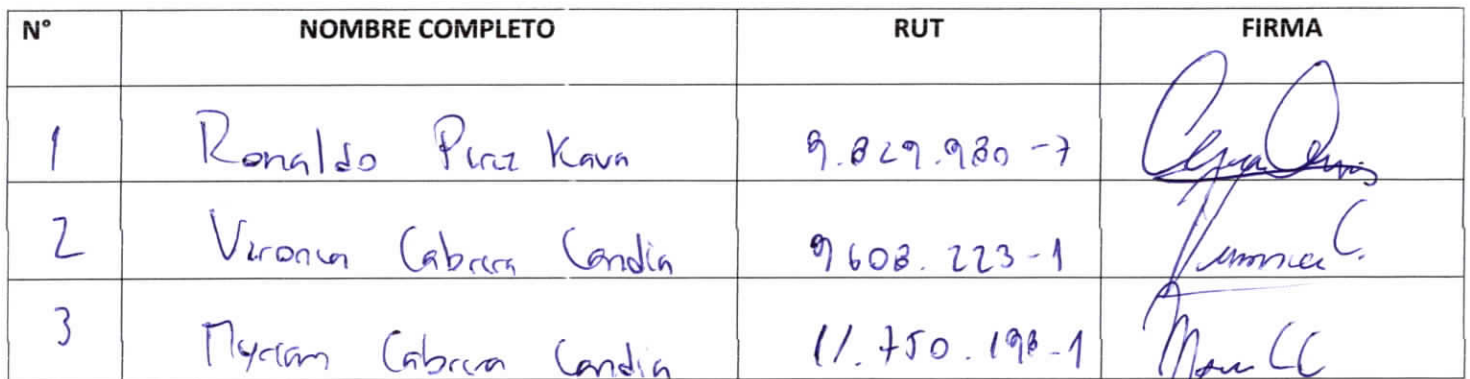 N° NOMBRE COMPLETO RUT FIRMA
1 Ronaldo Perez Kava 9.829.980-7
2 Veronica Cabrera Candia 9608.223-1 Veronica C.
3 Myriam Cabrera Candia 11.750.198-1